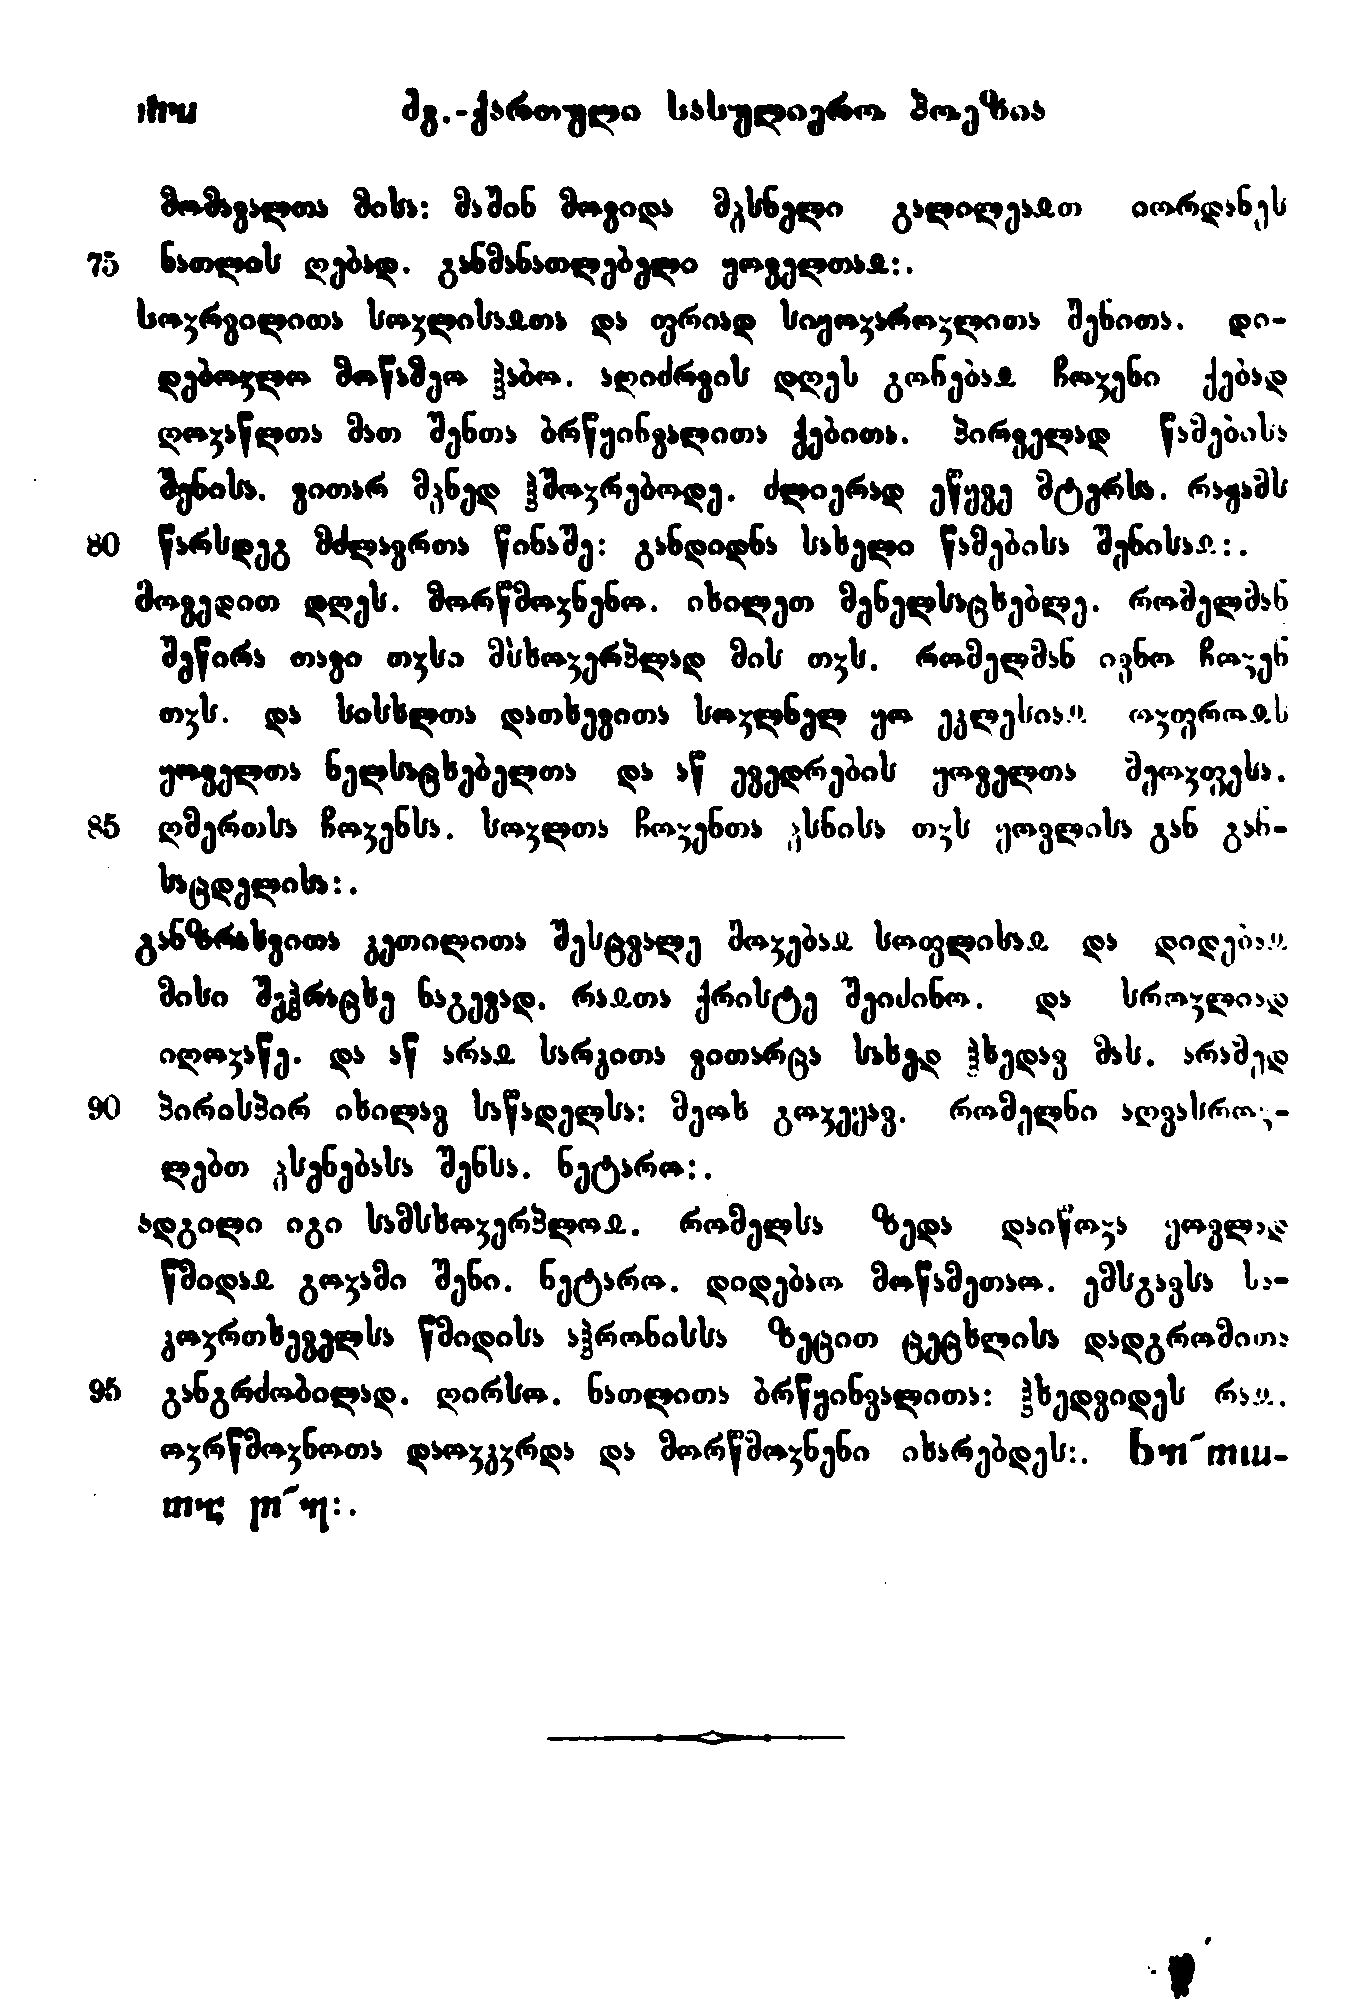 ძვ.-ქართული სასულიერო პოეზია
მომავალთა მისა: მაშინ მოვიდა მჴსნელი გალილეაჲთ იორდანეს
75 ნათლის ღებად. განმანათლებელი ყოველთაჲ:.
სოჳრვილითა სოჳლისაჲთა და ფრიად სიყოჳაროჳლითა შენითა. დი-
დებოჳლო მოწამეო ჰაბო. აღიძრვის დღეს გონებაჲ ჩოჳენი ქებად
ღოჳაწლთა მათ შენთა ბრწყინვალითა ქებითა. პირველად წამებისა
შენისა. ვითარ მჴნედ ჰშოჳრებოდე. ძლიერად ეწყვე მტერსა. რაჟამს
80 წარსდეგ მძლავრთა წინაშე: განდიდნა სახელი წამებისა შენისაჲ:.
მოვედით დღეს. მორწმოჳნენო. იხილეთ მენელსაცხებლე. რომელმან
შეწირა თავი თჳსი მსხოჳერპლად მის თჳს. რომელმან ივნო ჩოჳენ
თჳს. და სისხლთა დათხევითა სოჳლნელ ყო ეკლესიაჲ ოჳფროჲს
ყოველთა ნელსაცხებელთა და აწ ევედრების ყოველთა მეოჳფესა.
85 ღმერთსა ჩოჳენსა. სოჳლთა ჩოჳენთა ჴსნისა თჳს ყოვლისა გან გან-
საცდელისა:.
განზრახვითა კეთილითა შესტვალე შოჳებაჲ სოფლისაჲ და დიდებაჲ
მისი შეჰრაცხე ნაგევად. რაჲთა ქრისტე შეიძინო. და სროჳლიად
იღოჳაწე. და აწ არაჲ სარკითა ვითარცა სახედ ჰხედავ მას. არამედ
90 პირისპირ იხილავ საწადელსა: მეოხ გოჳეყავ. რომელნი აღვასროჳ-
ლებთ ჴსენებასა შენსა. ნეტარო:.
ადგილი იგი სამსხოჳერპლოჲ. რომელსა ზედა დაიწოჳა ყოვლად
წმიდაჲ გოჳამი შენი. ნეტარო. დიდებაო მოწამეთაო. ემსგავსა სა-
კოჳრთხეველსა წმიდისა აჰრონისსა ზეცით ცეცხლისა დადგრომითა
95 განგრძობილად. ღირსო. ნათლითა ბრწყინვალითა: ჰხედვიდეს რაჲ.
ოჳრწმოჳნოთა დაოჳკჳრდა და მორწმოჳნენი იხარებდეს:.